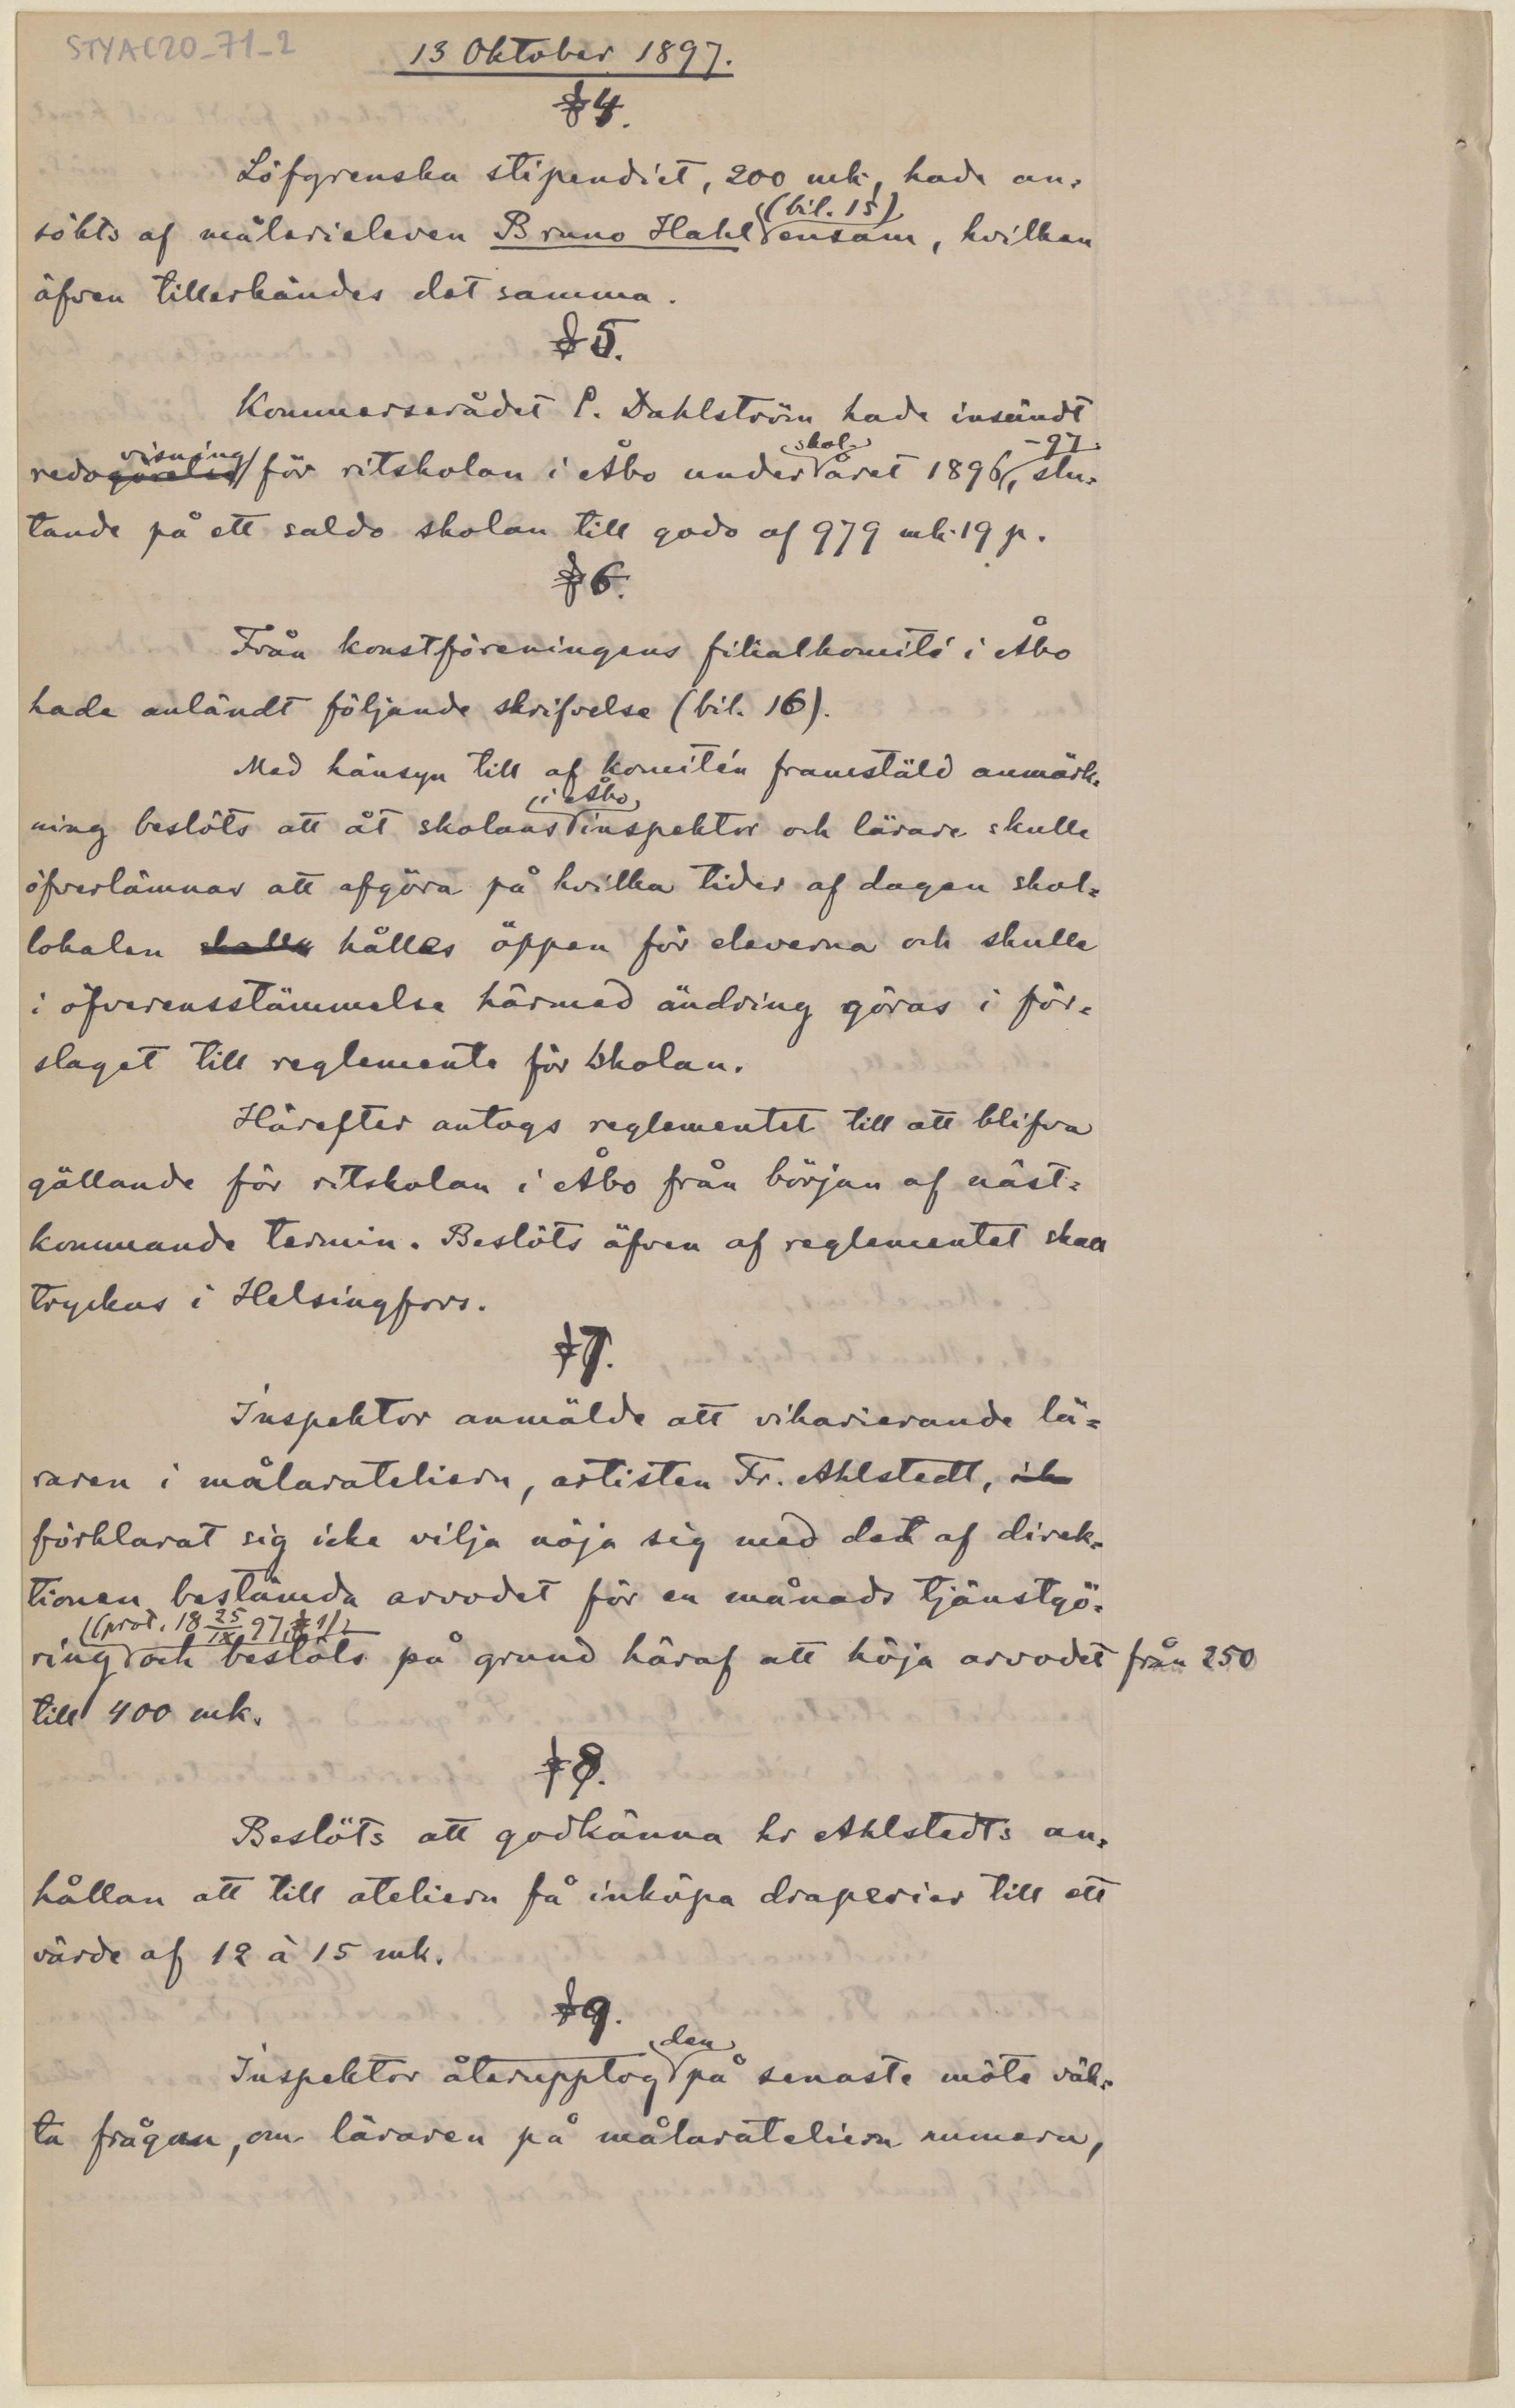 STYAC20_71_2
13 Oktober 1897.
§ 4.
Löfgrenska stipendiet, 200 mk, hade an-
(bil. 15)
sökts af målarieleven Bruno Hahl ensam, hvilken
äfven tillerkändes det samma.
§ 5.
Kommerserådet P. Dahlström hade insändt
visning skol- -97
redogörelse för ritskolan i Åbo under året 1896, slu-
tande på ett saldo skolan till godo af 979 mk 19 p.
§ 6.
Från konstföreningens filialkomité i Åbo
hade anländt följande skrifvelse (bil. 16).
Med hänsyn till af komitén framstäld anmärk-
i Åbo
ning beslöts att åt skolans inspektor och lärare skulle
öfverlämnas att afgöra på hvilka tider af dagen skol-
lokalen skulle hålles öppen för eleverna och skulle
i öfverensstämmelse härmed ändring göras i för-
slaget till reglemente för skolan.
Härefter antogs reglementet till att blifva
gällande för ritskolan i Åbo från början af näst-
kommande termin. Beslöts äfven af reglementet skall
tryckas i Helsingfors.
§ 7.
Inspektor anmälde att vikarierande lä-
raren i målaratelieru, artisten Fr. Ahlstedt, ik
förklarat sig icke vilja nöja sig med det af direk-
tionen bestämda arvodet för en månads tjänstgö-
(prot. 18 25/IX 97, § 1)
ring och beslöts på grund häraf att höja arvodet från 250
till 400 mk.
§ 8.
Beslöts att godkänna hr Ahlstedts an-
hållan att till atelieru få inköpa draperier till ett
värde af 12 à 15 mk.
§ 9.
den
Inspektor återupptog på senaste möte väk-
ta frågan, om läraren på målaratelieru numera,